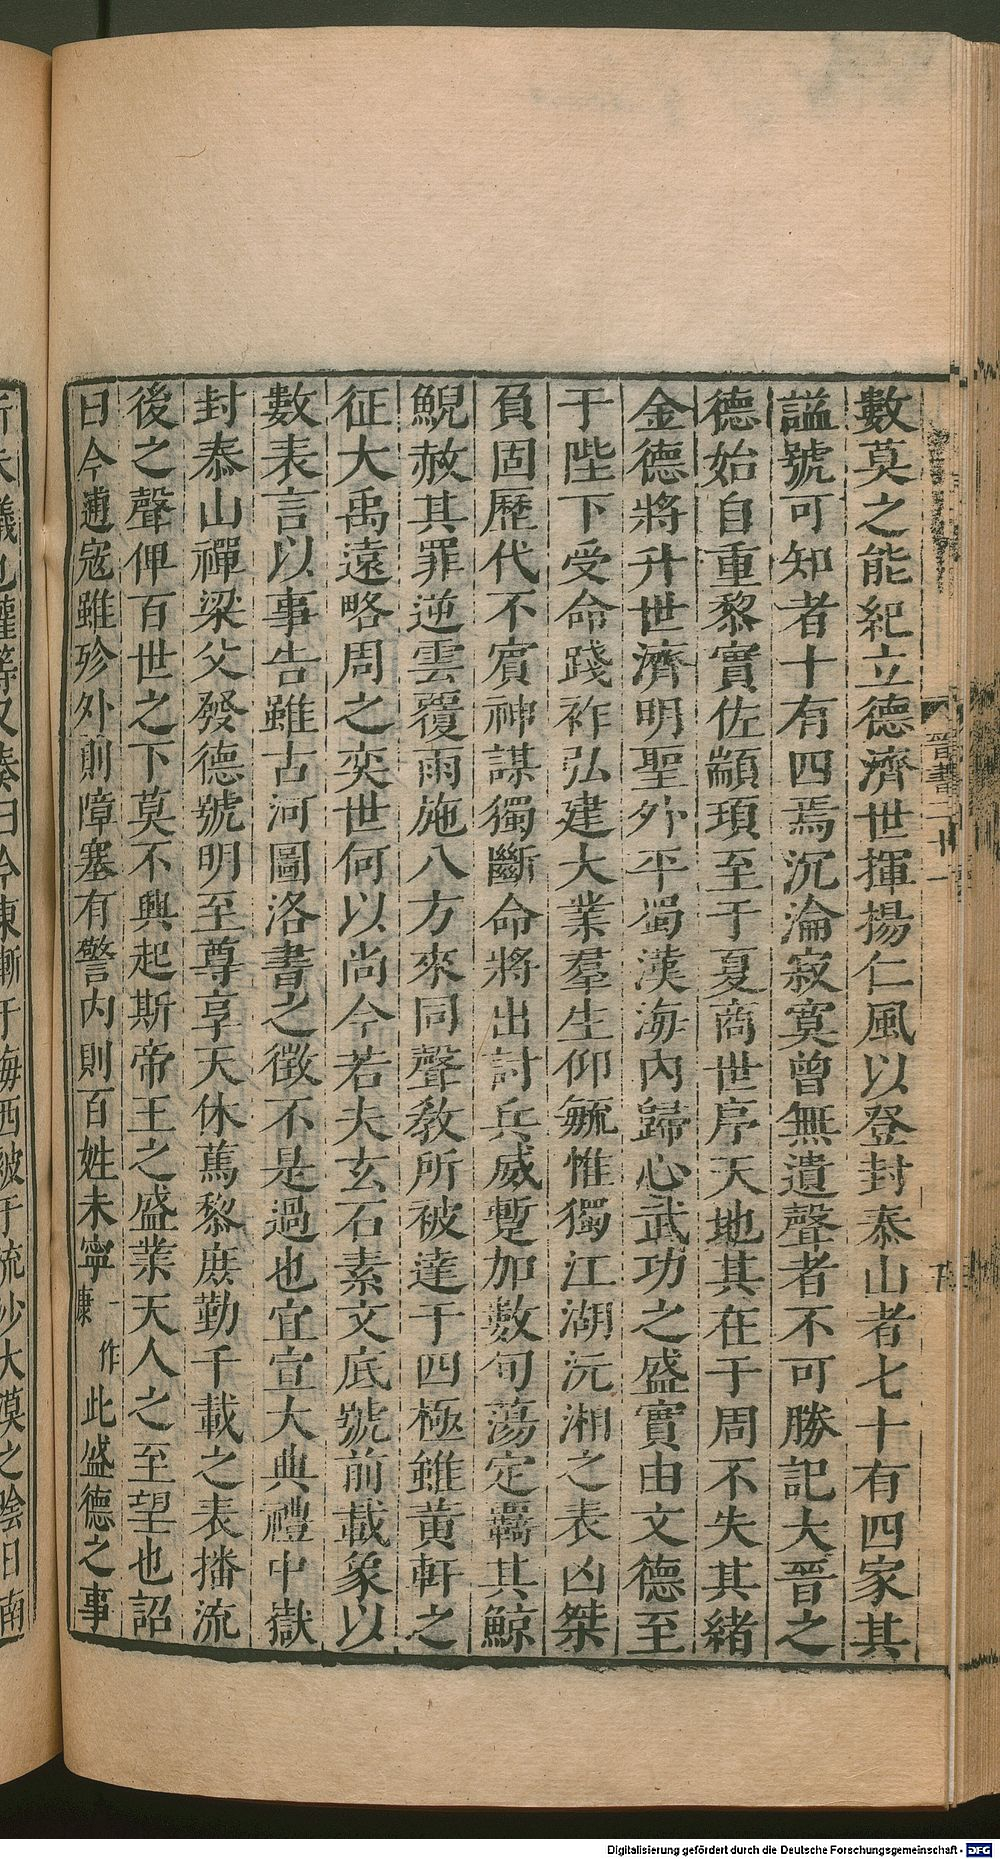 數莫之能紀立德濟世揮揚仁風以登封泰山者七十有四家其
諡號可知者十有四焉沉淪寂寞曾無遺聲者不可勝記大晉之
德始自重黎實佐顓頊至于夏商世序天地其在于周不失其緒
金德將升世濟明聖外平蜀漢海內歸心武功之盛實由文德至
于陛下受命踐祚弘建大業羣生仰毓惟獨江湖沅湘之表凶桀
負固歷代不賓神謀獨斷命將出討兵威暫加數旬蕩定羈其鯨
鯢赦其罪逆雲覆雨施八方來同聲教所被達于四極雖黃軒之
征大禹遠略周之奕世何以尚今若夫玄石素文底號前載象以
數表言以事告雖古河圖洛書之徵不是過也宜宣大典禮中嶽
封泰山禪梁父發德號明至尊享天休篤黎庶勒千載之表播流
後之聲俾百世之下莫不興起斯帝王之盛業天人之至望也詔
曰今逋寇雖殄外則障塞有警內則百姓未寧一作康此盛德之事
晉書二十一
Digitalisierung gefördert durch die Deutsche Forschungsgemeinschaft - DFG